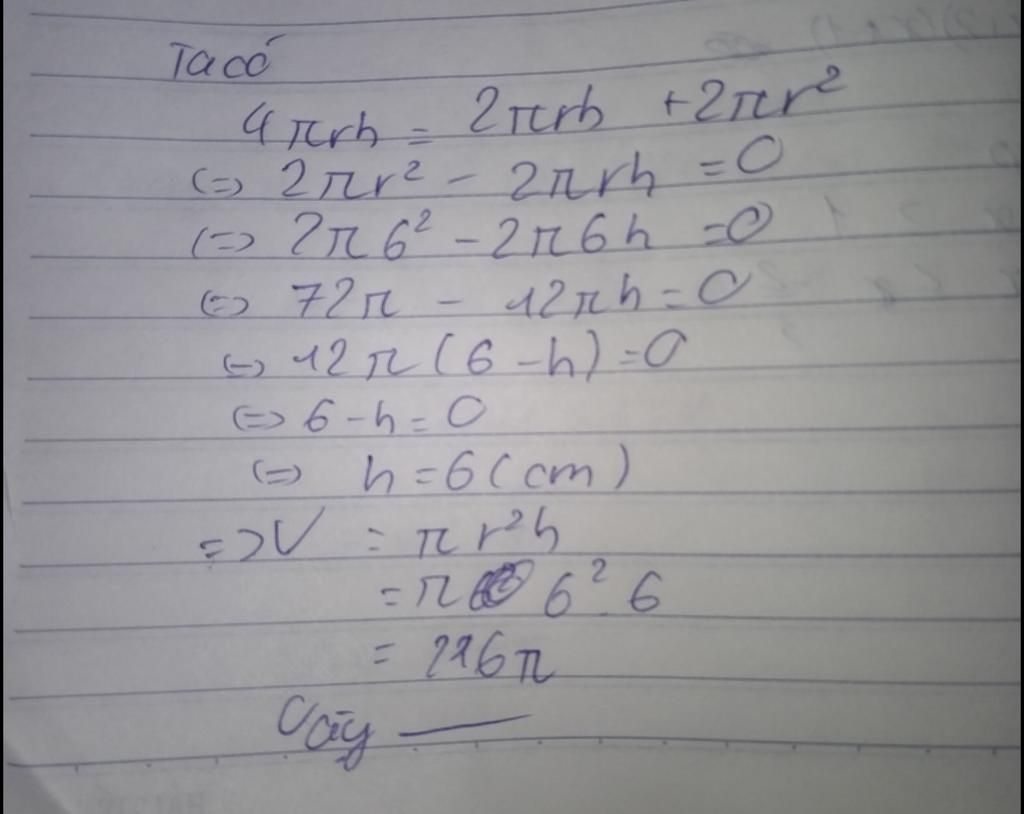 Ta có
4πrh = 2πrh + 2πr²
(=) 2πr² - 2πrh = 0
(=) 2π6² - 2π6h = 0
(=) 72π - 12πh = 0
(=) 12π(6-h) = 0
(=) 6-h = 0
(=) h = 6(cm)
=> V = πr²h
= π 6² . 6
= 216π
Vậy